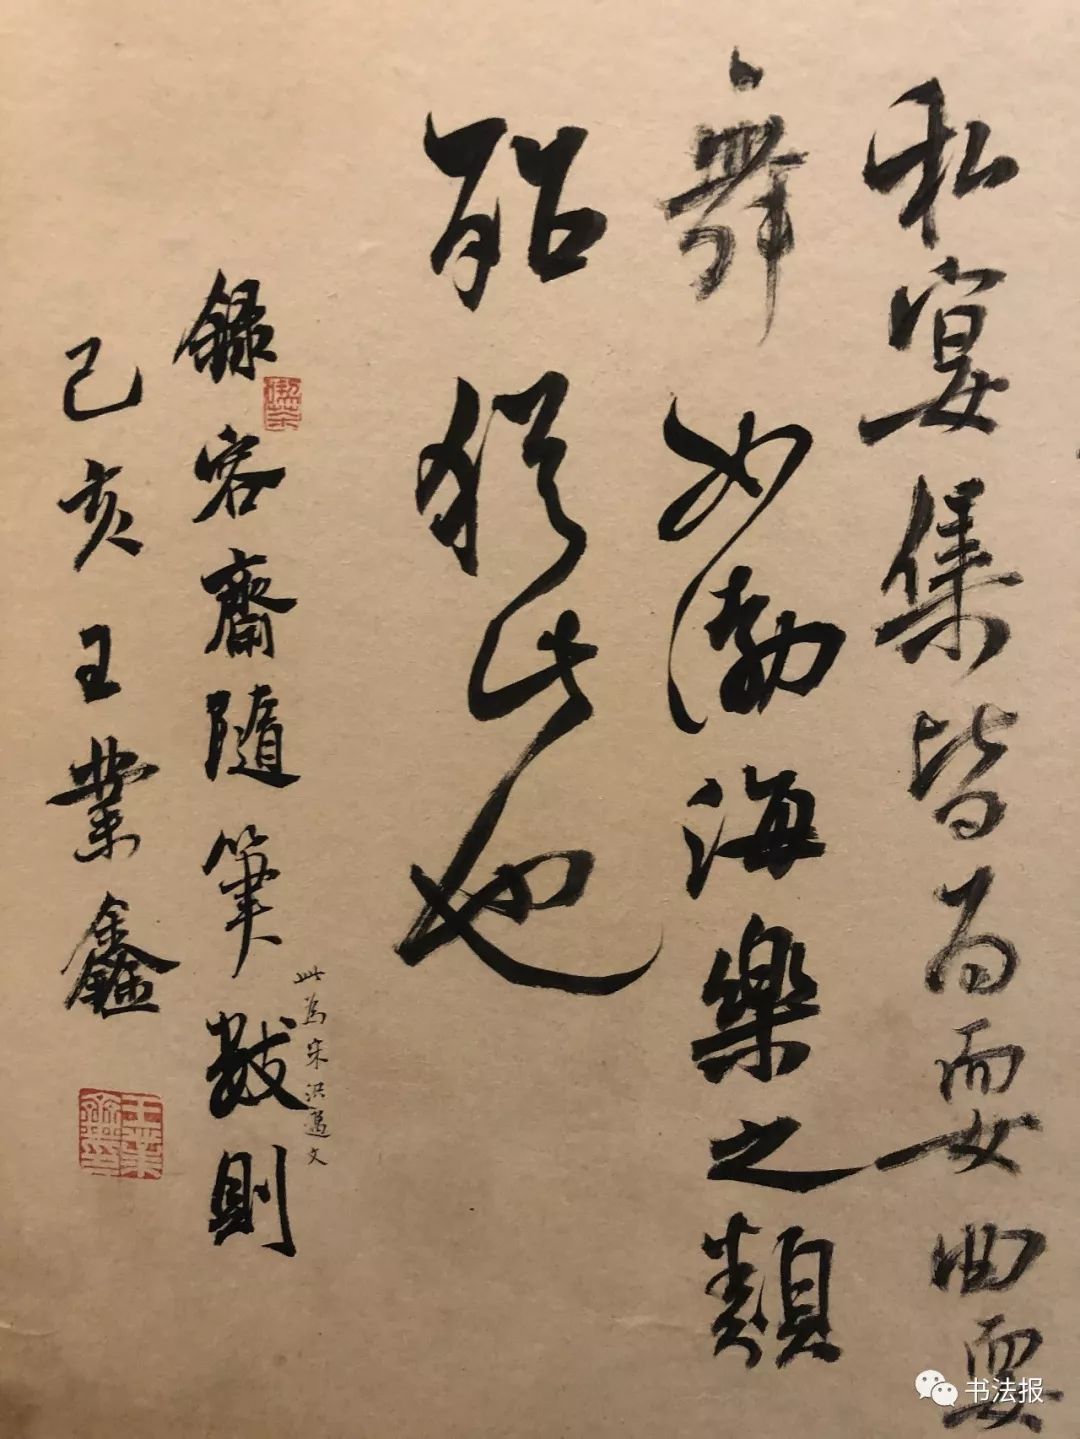 私宴集皆为耍曲耍
舞如渤海樂之類
殆猶此也
録容齋隨筆數則
此為宋洪邁文
己亥王業鑫
书法报